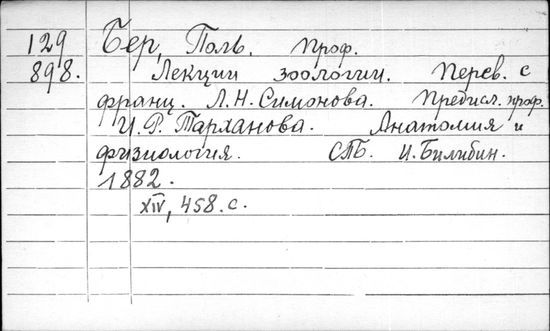 129 Бер, Поль. проф.
898. Лекции зоологии. Перев. с
франц. Л.Н.Симонова. Предисл. проф.
И.Р.Тарханова. Анатомия и
физиология. СПБ. И.Билибин.
1882.
XIV, 458.с.